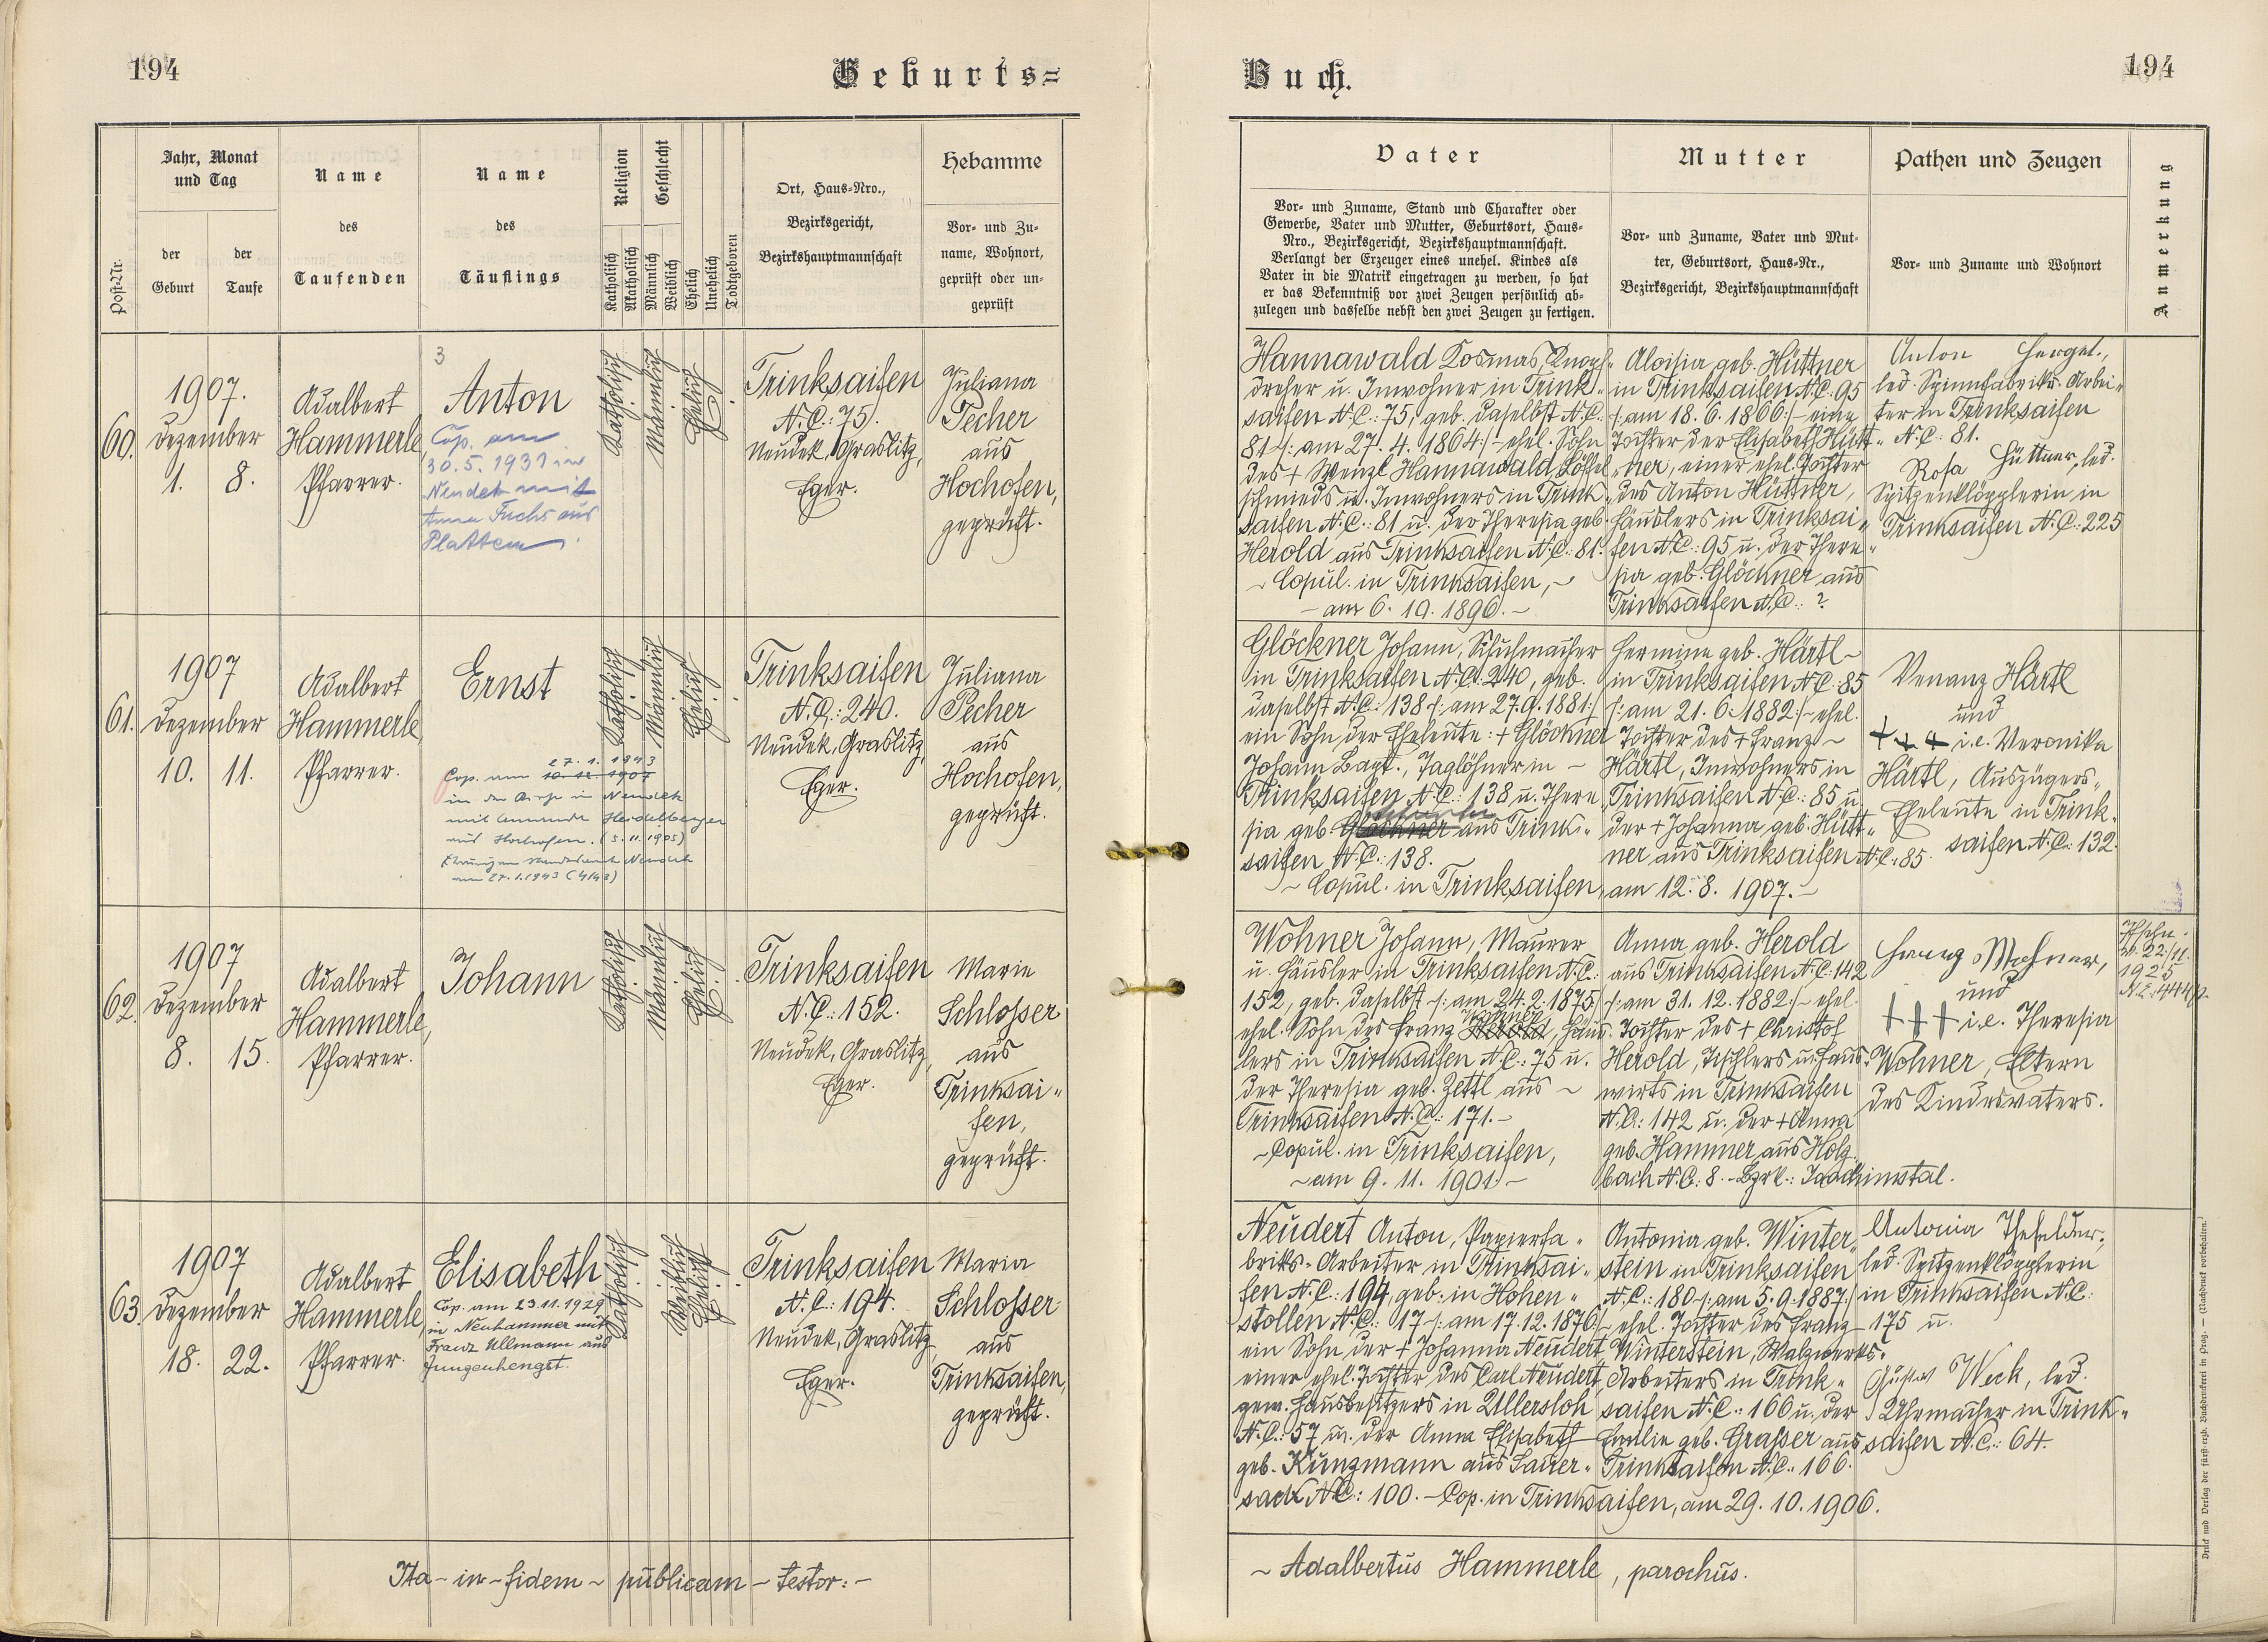 194
Geburts=
Buch.
194
Post-Nr.
Jahr, Monat
und Tag
der
Geburt
der
Taufe
Name
des
Taufenden
Name
des
Täuflings
Religion
Katholisch
Akatholisch
Geschlecht
Männlich
Weiblich
Ehelich
Unehelich
Todtgeboren
Ort, Haus-Nro.,
Bezirksgericht,
Bezirkshauptmannschaft
Hebamme
Vor- und Zu-
name, Wohnort,
geprüft oder un-
geprüft
Vater
Vor- und Zuname, Stand und Charakter oder
Gewerbe, Vater und Mutter, Geburtsort, Haus-
Nro., Bezirksgericht, Bezirkshauptmannschaft.
Verlangt der Erzeuger eines unehel. Kindes als
Vater in die Matrik eingetragen zu werden, so hat
er das Bekenntniß vor zwei Zeugen persönlich ab-
zulegen und dasselbe nebst den zwei Zeugen zu fertigen.
Mutter
Vor- und Zuname, Vater und Mut-
ter, Geburtsort, Haus-Nr.,
Bezirksgericht, Bezirkshauptmannschaft
Pathen und Zeugen
Vor- und Zuname und Wohnort
Anmerkung
60.
1907.
Dezember
1. 8.
Adalbert
Hammerle,
Pfarrer.
3
Anton
Cop. am
30.5.1931 in
Neudek mit
Anna Fuchs aus
Platten.
Katholisch
Männlich
Ehelich
Trinksaifen
N.C.: 75.
Neudek, Graslitz,
Eger.
Juliana
Pecher
aus
Hochofen,
geprüft.
Hannawald Kosmas, Knopf-
dreher u. Inwohner in Trink-
saifen N.C.: 75, geb. daselbst N.C.:
81 /: am 27. 4. 1864 :/ - ehel. Sohn
des + Wenzl Hannawald Löffel-
schmieds u. Inwohners in Trink-
saifen N.C.: 81 u. der Theresia geb.
Herold aus Trinksaifen N.C.: 81.
- Copul. in Trinksaifen, -
- am 6. 10. 1896. -
Aloisia geb. Hüttner
in Trinksaifen N.C. 95
/: am 18. 6. 1866 :/ - eine
Tochter der Elisabeth Hütt-
ner, einer ehel. Tochter
des Anton Hüttner,
Häuslers in Trinksai-
fen N.C.: 95 u. der There-
sia geb. Glöckner aus
Trinksaifen N.C.: ?
Anton Herget.,
led. Spinnfabriks. Arbei-
ter in Trinksaifen
N.C.: 81.
Rosa Hüttner, led.
Spitzenklöpplerin in
Trinksaifen N.C.: 225
61.
1907
Dezember
10. 11.
Adalbert
Hammerle,
Pfarrer.
Ernst
27. 1. 1943
Cop. am 10.12.1907
in der Kirche in Neudek
mit Heidelberger
aus Hochofen. (5.11.1905)
Neudek
am 27.1.1943 (4/43)
Katholisch
Männlich
Ehelich
Trinksaifen
N.C.: 240.
Neudek, Graslitz,
Eger.
Juliana
Pecher
aus
Hochofen,
geprüft.
Glöckner Johann, Schuhmacher
in Trinksaifen N.C.: 240, geb.
daselbst N.C.: 138 /: am 27.9.1881 :/
ein Sohn der Eheleute: + Glöckner
Johann Bapt., Taglöhner in -
Trinksaifen N.C.: 138 u. There-
sia geb. Glöckner aus Trink-
saifen N.C.: 138.
- Copul. in Trinksaifen, am 12. 8. 1907. -
Hermine geb. Härtl -
in Trinksaifen N.C.: 85
/: am 21. 6. 1882 :/ - ehel.
Tochter des + Franz -
Härtl, Inwohners in
Trinksaifen N.C.: 85 u.
der + Johanna geb. Hütt-
ner aus Trinksaifen N.C.: 85.
Venanz Härtl
und
+++ i.e. Veronika
Härtl, Auszügers-
Eheleute in Trink-
saifen N.C.: 132.
62.
1907
Dezember
8. 15.
Adalbert
Hammerle,
Pfarrer.
Johann
Katholisch
Männlich
Ehelich
Trinksaifen
N.C.: 152.
Neudek, Graslitz,
Eger.
Marie
Schlosser
aus
Trinksai-
fen,
geprüft.
Wohner Johann, Maurer
u. Häusler in Trinksaifen N.C.:
152, geb. daselbst /: am 24.2.1875 :/
Wohner
ehel. Sohn des Franz Herold, Häus-
lers in Trinksaifen N.C.: 75 u.
der Theresia geb. Zettl aus -
Trinksaifen N.C.: 171. -
- Copul. in Trinksaifen,
- am 9. 11. 1901. -
Anna geb. Herold
aus Trinksaifen N.C.: 142
/: am 31. 12. 1882 :/ - ehel.
Tochter des + Christof
Herold, Tischlers u. Haus-
wirts in Trinksaifen
N.C.: 142 u. der + Anna
geb. Hammer aus Holz-
bach N.C.: 8. - Bzrk.: Joachimstal.
Franz Wohner,
und
+++ i.e. Theresia
Wohner, Eltern
des Kindesvaters.
22/11.
1925
63.
1907
Dezember
18. 22.
Adalbert
Hammerle,
Pfarrer.
Elisabeth
Cop. am 23.11.1929
in Neuhammer mit
Franz Ullmann aus
Jungenhengst.
Katholisch
Weiblich
Ehelich
Trinksaifen
N.C.: 194.
Neudek, Graslitz,
Eger.
Maria
Schlosser
aus
Trinksaifen,
geprüft.
Neudert Anton, Papierfa-
briks-Arbeiter in Trinksai-
fen N.C.: 194, geb. in Hohen-
stollen N.C.: 17 /: am 17.12.1876 :/
ein Sohn der + Johanna Neudert
einer ehel. Tochter des Carl Neudert,
gew. Hausbesitzers in Ullersloh
N.C.: 57 u. der Anna Elisabeth
geb. Kunzmann aus Sauer-
sack N.C.: 100. - Cop. in Trinksaifen, am 29. 10. 1906.
Antonia geb. Winter-
stein in Trinksaifen
N.C.: 180 /: am 5. 9. 1887 :/
- ehel. Tochter des Franz
Winterstein, Walzwerks-
Arbeiters in Trink-
saifen N.C.: 166 u. der
Emilie geb. Grasser aus
Trinksaifen N.C.: 166.
Antonia
led. Spitzenklöpplerin
in Trinksaifen N.C.:
175 u.
Gustav Weck, led.
Uhrmacher in Trink-
saifen N.C.: 64.
Ita - in - fidem - publicam - testor: -
- Adalbertus Hammerle, parochus.
Druck und Verlag der fürst-erzb. Buchdruckerei in Prag. — (Nachdruck vorbehalten.)